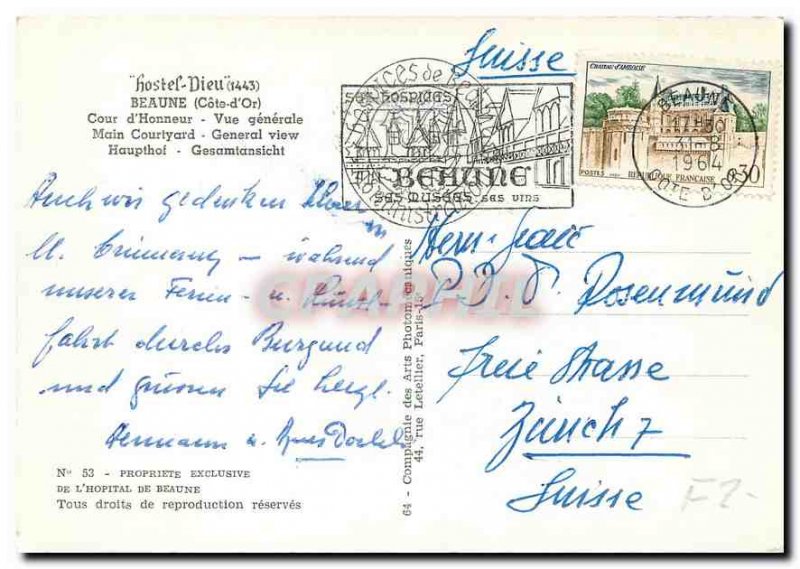 "hostel-Dieu" (1443)
BEAUNE (Côte-d'Or)
Cour d'Honneur - Vue générale
Main Courtyard - General view
Haupthof - Gesamtansicht
Auch wir gedenken Ihrer
in Erinnerung - während
unserer Ferien- u. Kunst-
fahrt durchs Burgund
und grüssen Sie herzl.
Hermann u.
N° 53 - PROPRIETE EXCLUSIVE
DE L'HOPITAL DE BEAUNE
Tous droits de reproduction réservés
64 - Compagnie des Arts Photomécaniques
44, rue Letellier, Paris-15e
SES HOSPICES
BEAUNE
SES MUSÉES - SES VINS
CHATEAU D'AMBOISE
POSTES
REPUBLIQUE FRANÇAISE
0,30
BEAUNE
1964
COTE D'OR
Suisse
P.D. P. Rosenmund
Freie Strasse
Zürich 7
Suisse
F2-
CPARAMA